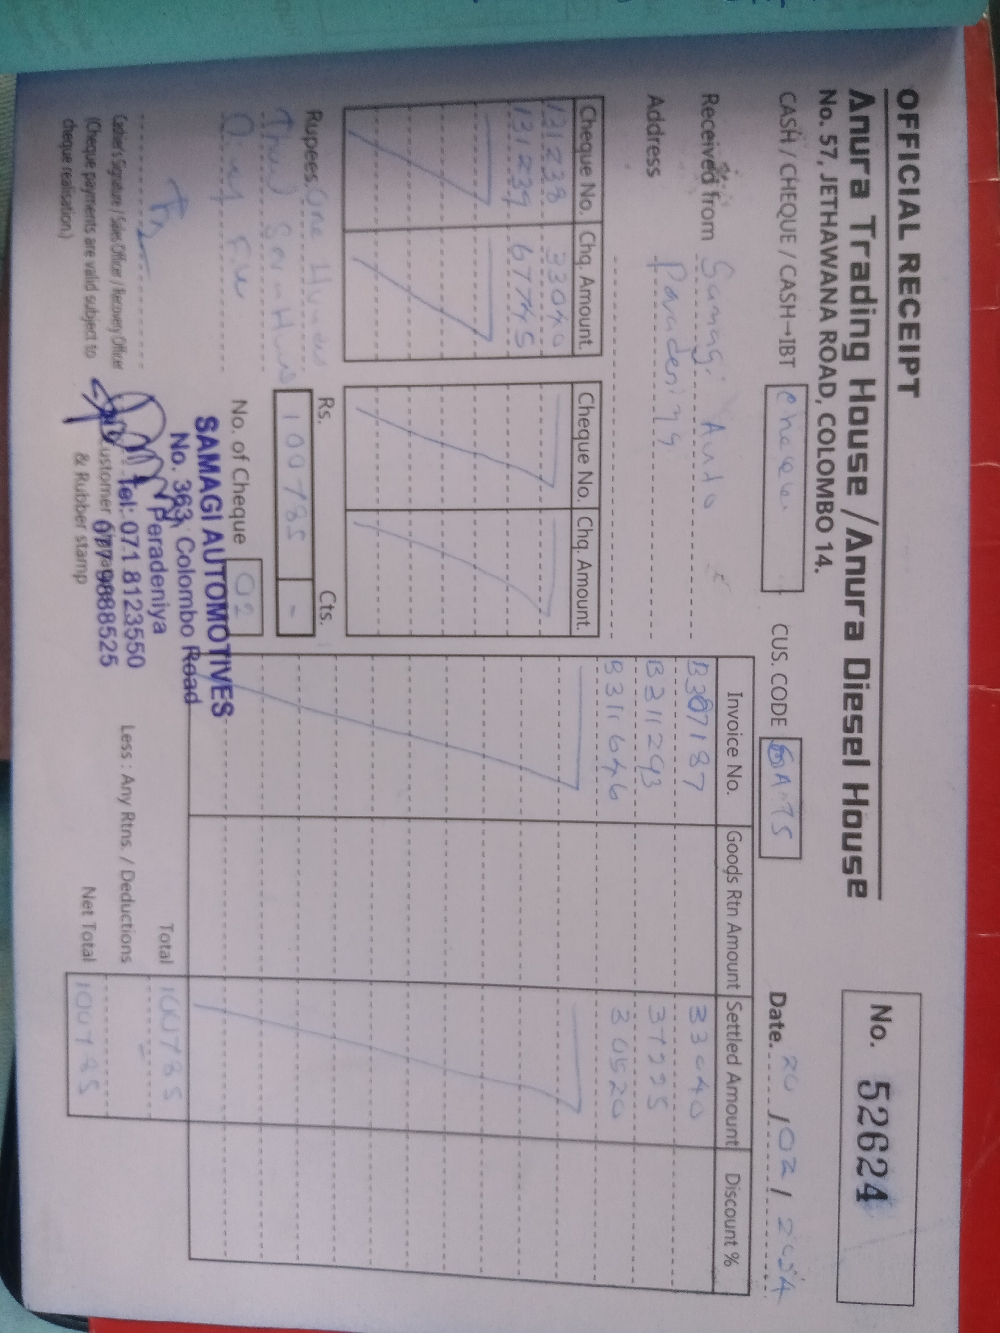 OFFICIAL RECEIPT
Anura Trading House / Anura Diesel House
No. 57, JETHAWANA ROAD, COLOMBO 14.
No. 52624
CASH / CHEQUE / CASH→IBT
CUS. CODE
Date. 20 / 02 /
Received from Samagi Auto
Address Peradeniya
Cheque No. Chq. Amount. Cheque No. Chq. Amount.
131238 33040
131239 67745
Invoice No. Goods Rtn Amount Settled Amount Discount %
B307187 33040
B311293 37225
B311646 30520
Rupees One Hundred
Rs. 100785 Cts. -
No. of Cheque 02
Total 100785
Less : Any Rtns. / Deductions
Net Total 100785
Cashier's Signature / Sales Officer / Recovery Officer
(Cheque payments are valid subject to
cheque realisation.)
Customer
& Rubber stamp
SAMAGI AUTOMOTIVES
No. 363, Colombo Road
Peradeniya
Tel: 071 8123550
077 9888525